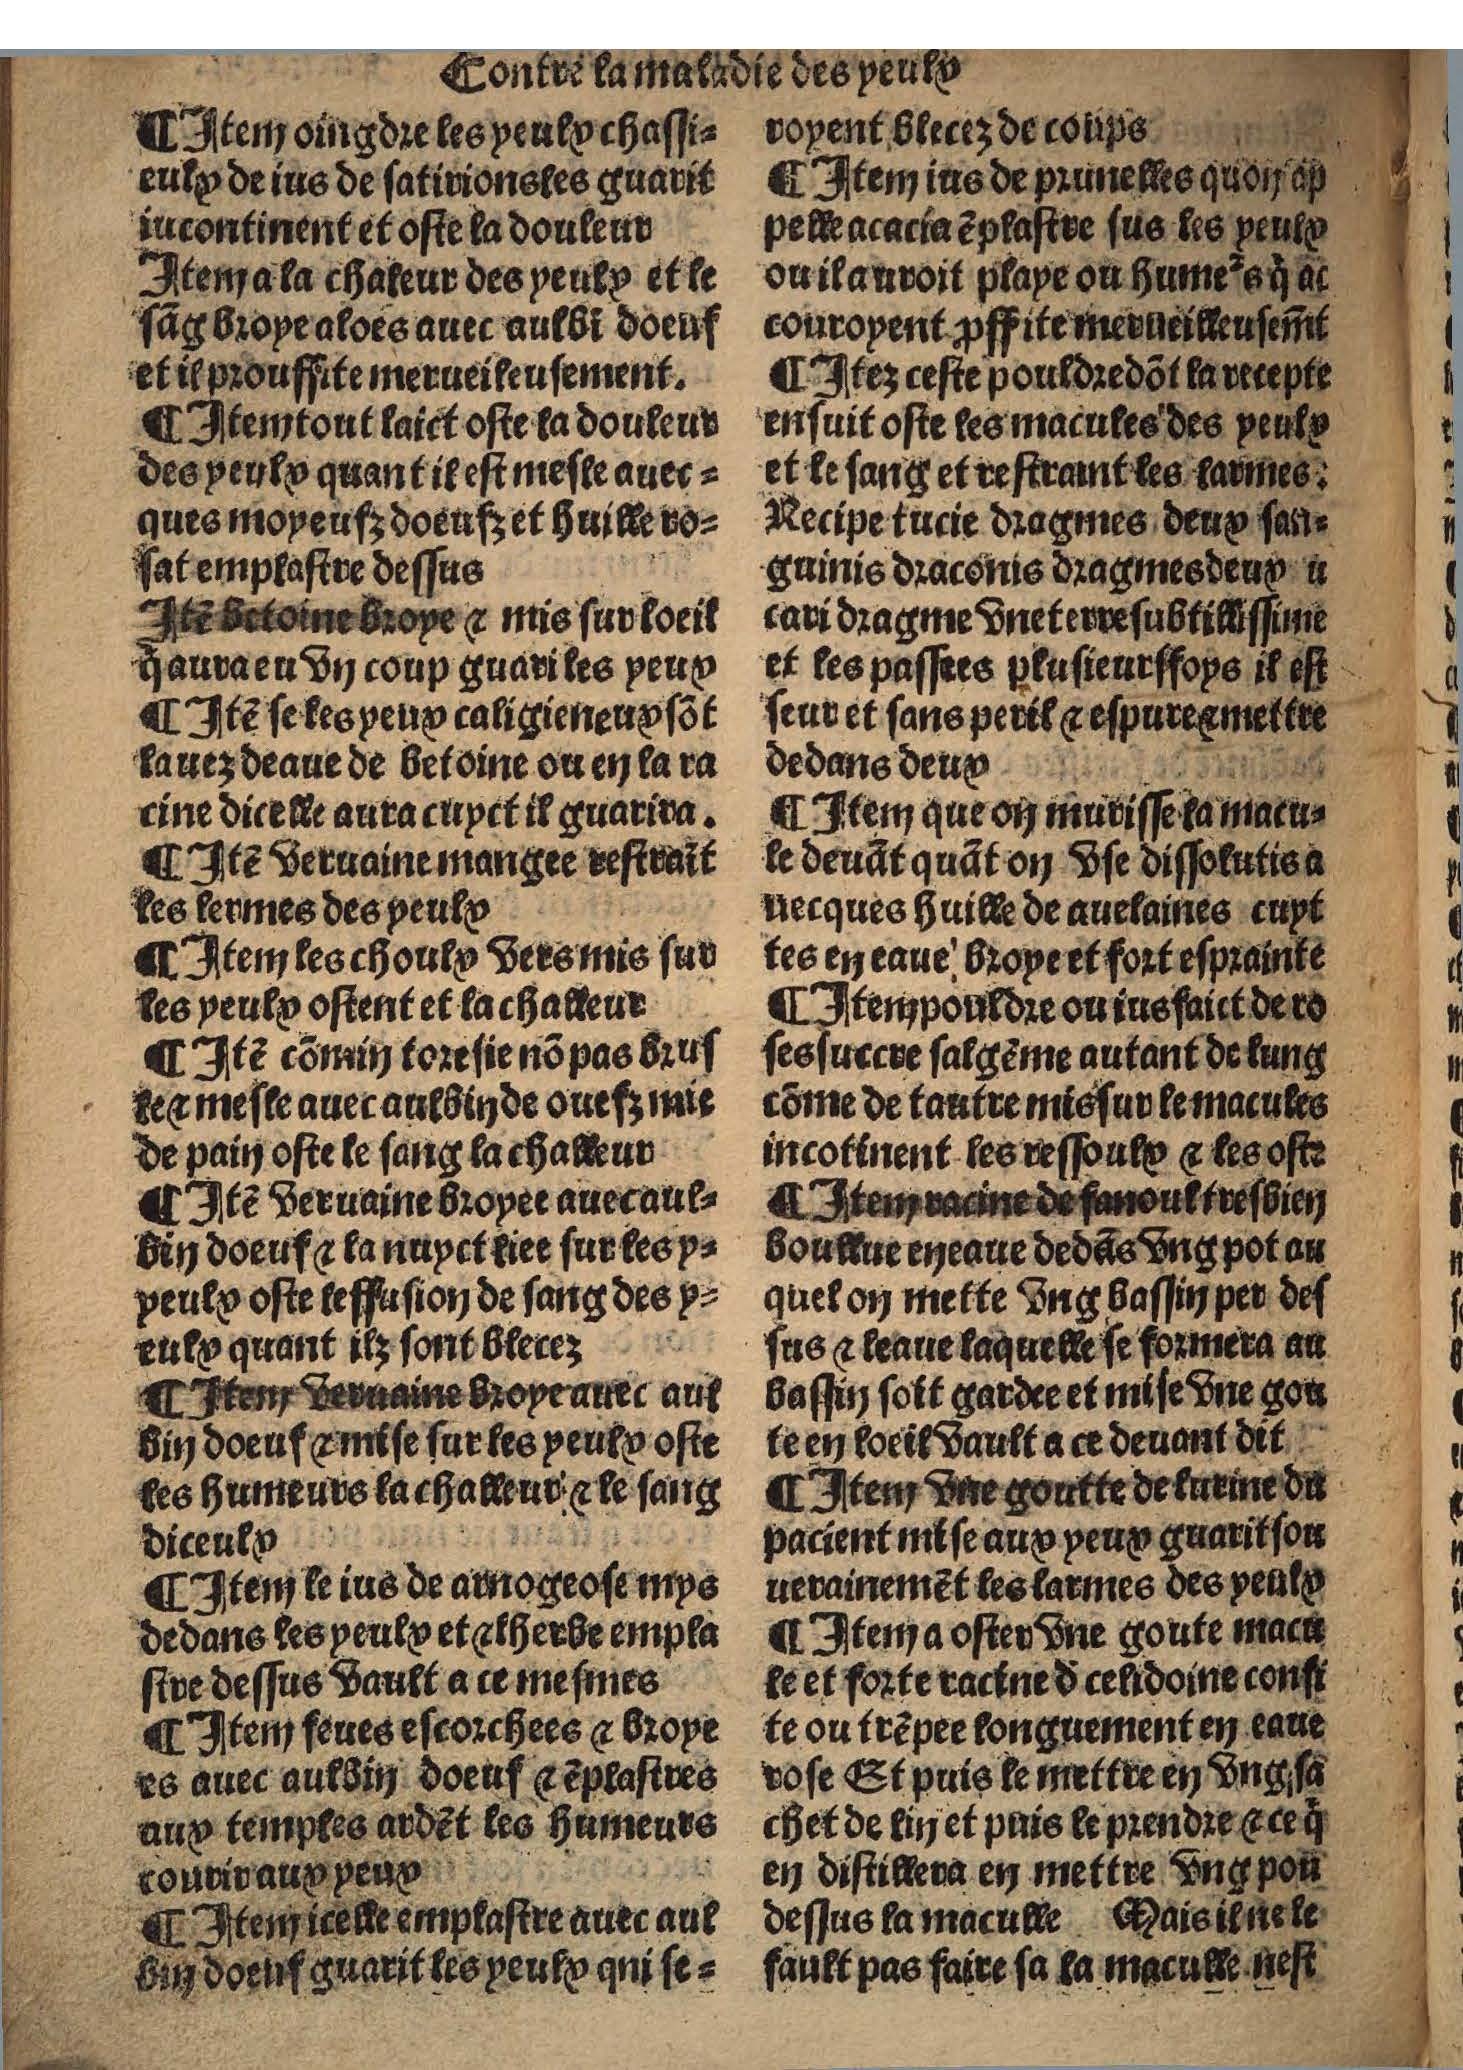 Contre la maladie des yeulx
¶ Item oingdre les yeulx chassi-
eulx de ius de satirions les guarit
iucontinent et oste la douleur
Item a la chaleur des yeulx et le
sãg broye aloes auec aulbĩ doeuf
et il prouffite merueileusement.
¶ Item tout laict oste la douleur
des yeulx quant il est mesle auec-
ques moyeufz doeufz et huille ro-
sat emplastre dessus
Itẽ betoine broye ⁊ mis sur loeil
q̃ aura eu vn coup guari les yeux
¶ Itẽ se les yeux caligieneux sõt
lauez deaue de betoine ou en la ra
cine dicelle aura cuyct il guarira.
¶ Itẽ veruaine mangee restraĩt
les lermes des yeulx
¶ Item les choulx vers mis sur
les yeulx ostent et la challeur
¶ Itẽ cõmin toresie nõ pas brus
le ⁊ mesle auec aulbin de ouefz mie
de pain oste le sang la challeur
¶ Itẽ veruaine broyee auec aul-
bin doeuf ⁊ la nuyct liee sur les y-
yeulx oste leffusion de sang des y-
eulx quant ilz sont blecez
¶ Item veruaine broye auec aul
bin doeuf ⁊ mise sur les yeulx oste
les humeurs la challeur ⁊ le sang
diceulx
¶ Item le ius de arnogeose mys
dedans les yeulx et ⁊ lherbe empla
stre dessus vault a ce mesmes
¶ Item feues escorchees ⁊ broye
es auec aulbin doeuf ⁊ ẽplastres
aux temples ardẽt les humeurs
courir aux yeux
¶ Item icelle emplastre auec aul
bin doeuf guarit les yeulx qni se-
royent blecez de coups
¶ Item ius de prunelles quon ap
pelle acacia ẽplastre sus les yeulx
ou il auroit playe ou hume²s q̃ ac
couroyent ꝓffite merueilleusem̃t
¶ Itez ceste pouldre dõt la recepte
ensuit oste les macules des yeulx
et le sang et restraint les larmes:
Recipe tucie dragmes deux san-
guinis draconis dragmes deux u
cari dragme vne terre subtillissime
et les passees plusieurs foys il est
seur et sans peril ⁊ espure ⁊ mettre
dedans deux
¶ Item que on murisse la macu-
le deuãt quãt on vse dissolutis a
uecques huille de auelaines cuyt
tes en eaue broye et fort esprainte
¶ Item pouldre ou ius faict de ro
ses succre salgẽme autant de lung
cõme de tautre mis sur le macules
incotinent les ressoulx ⁊ les oste
¶ Item racine de fanoul tresbien
boullue en eaue dedãs vng pot au
quel on mette vng bassin per des
sus ⁊ leaue laquelle se formera au
bassin soit gardee et mise vne gou
te en loeil vault a ce deuant dit
¶ Item vne goutte de lurine du
pacient mise aux yeux guarit sou
uerainemẽt les larmes des yeulx
¶ Item a oster vne goute macu
le et forte racine d̃ celidoine confi
te ou trẽpee longuement en eaue
rose Et puis le mettre en vng sa
chet de lin et puis le prendre ⁊ ce q̃
en distillera en mettre vng pou
dessus la maculle Mais il ne le
fault pas faire sa la maculle nest